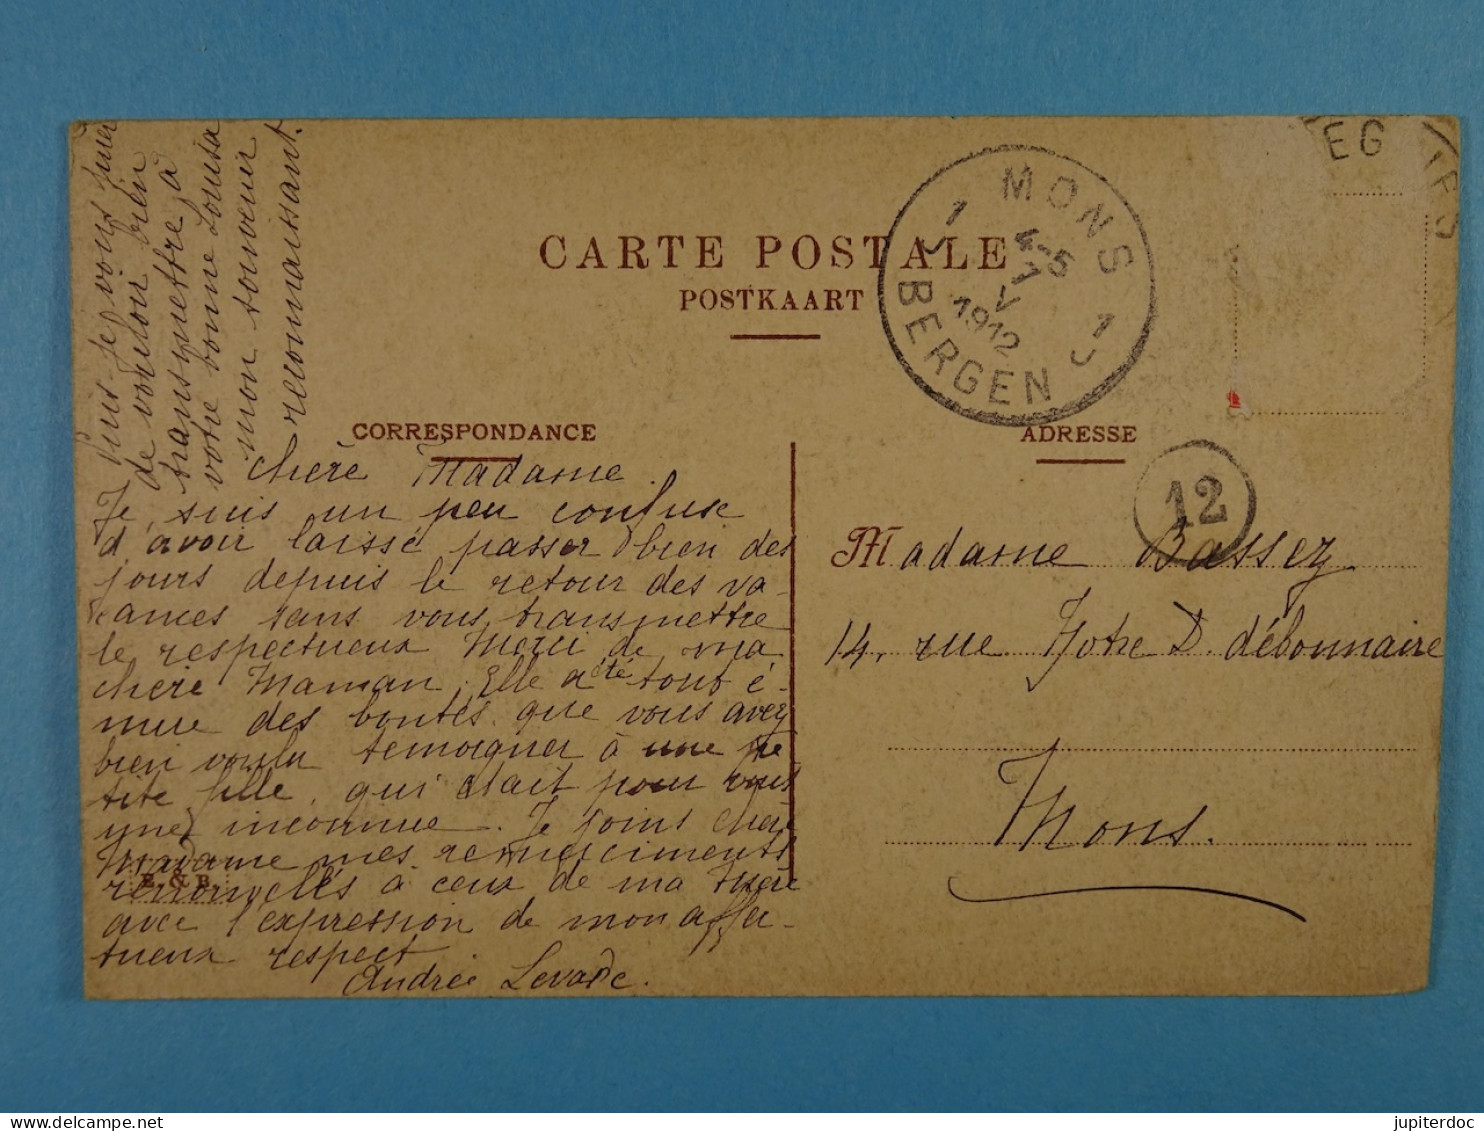 CARTE POSTALE
POSTKAART
CORRESPONDANCE
ADRESSE
MONS
1 J
4-5
7
V
1912
1 J
BERGEN
EG
12
Chère Madame.
Je suis un peu confuse
d'avoir laissé passer bien des
jours depuis le retour des va-
cances sans vous transmettre
le respectueux Merci de ma
chère Maman, Elle a été tout é-
mue des bontés que vous avez
bien voulu temoigner à une pe
tite fille, qui était pour vous
une inconnue. Je joins chère
Madame mes remerciments
renouvelés à ceux de ma Mère
avec l'expression de mon affec-
tueux respect
Andrée Levarie.
E. & B.
Puis-je vous prier
de vouloir bien
transmettre à
votre bonne Louisa
mon souvenir
reconnaissant.
Madame Bassez
14, rue Notre D. débonnaire
Mons.
jupiterdoc
delcampe.net